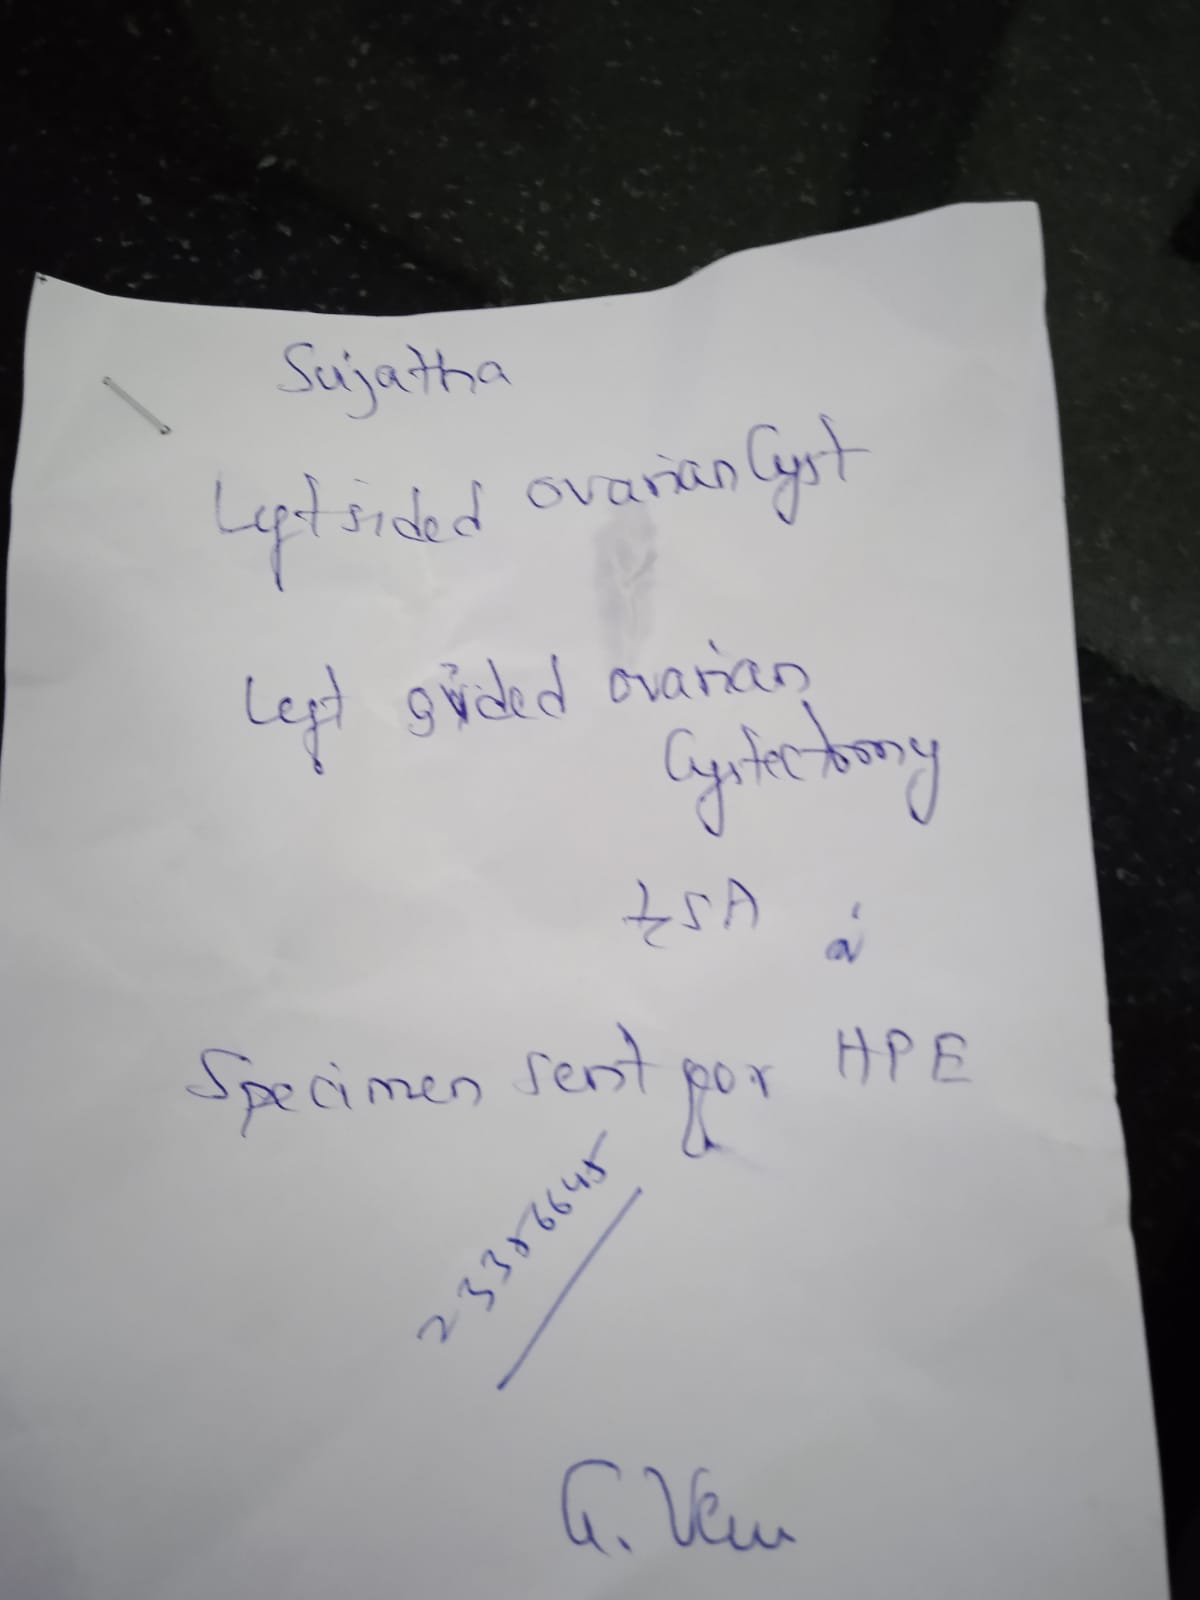 Sujatha
Left sided ovarian Cyst
Left sided ovarian
Cystectomy
SA
Specimen sent for HPE
23356645
G. Ven